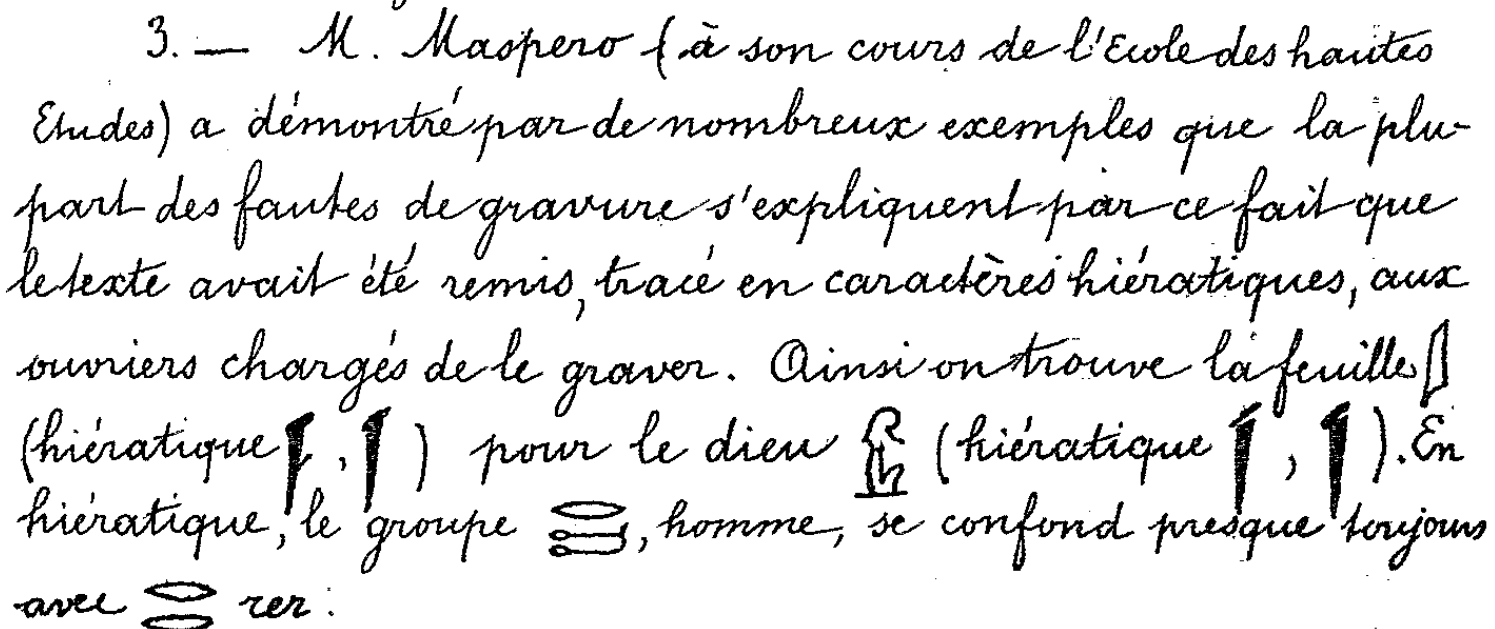 3. — M. Maspero (à son cours de l'Ecole des hautes
Etudes) a démontré par de nombreux exemples que la plu-
part des fautes de gravure s'expliquent par ce fait que
le texte avait été remis, tracé en caractères hiératiques, aux
ouvriers chargés de le graver. Ainsi on trouve la feuille 𓇋
(hiératique , ) pour le dieu 𓀭 (hiératique , ). En
hiératique, le groupe , homme, se confond presque toujours
avec 𓂋𓂋 rer :